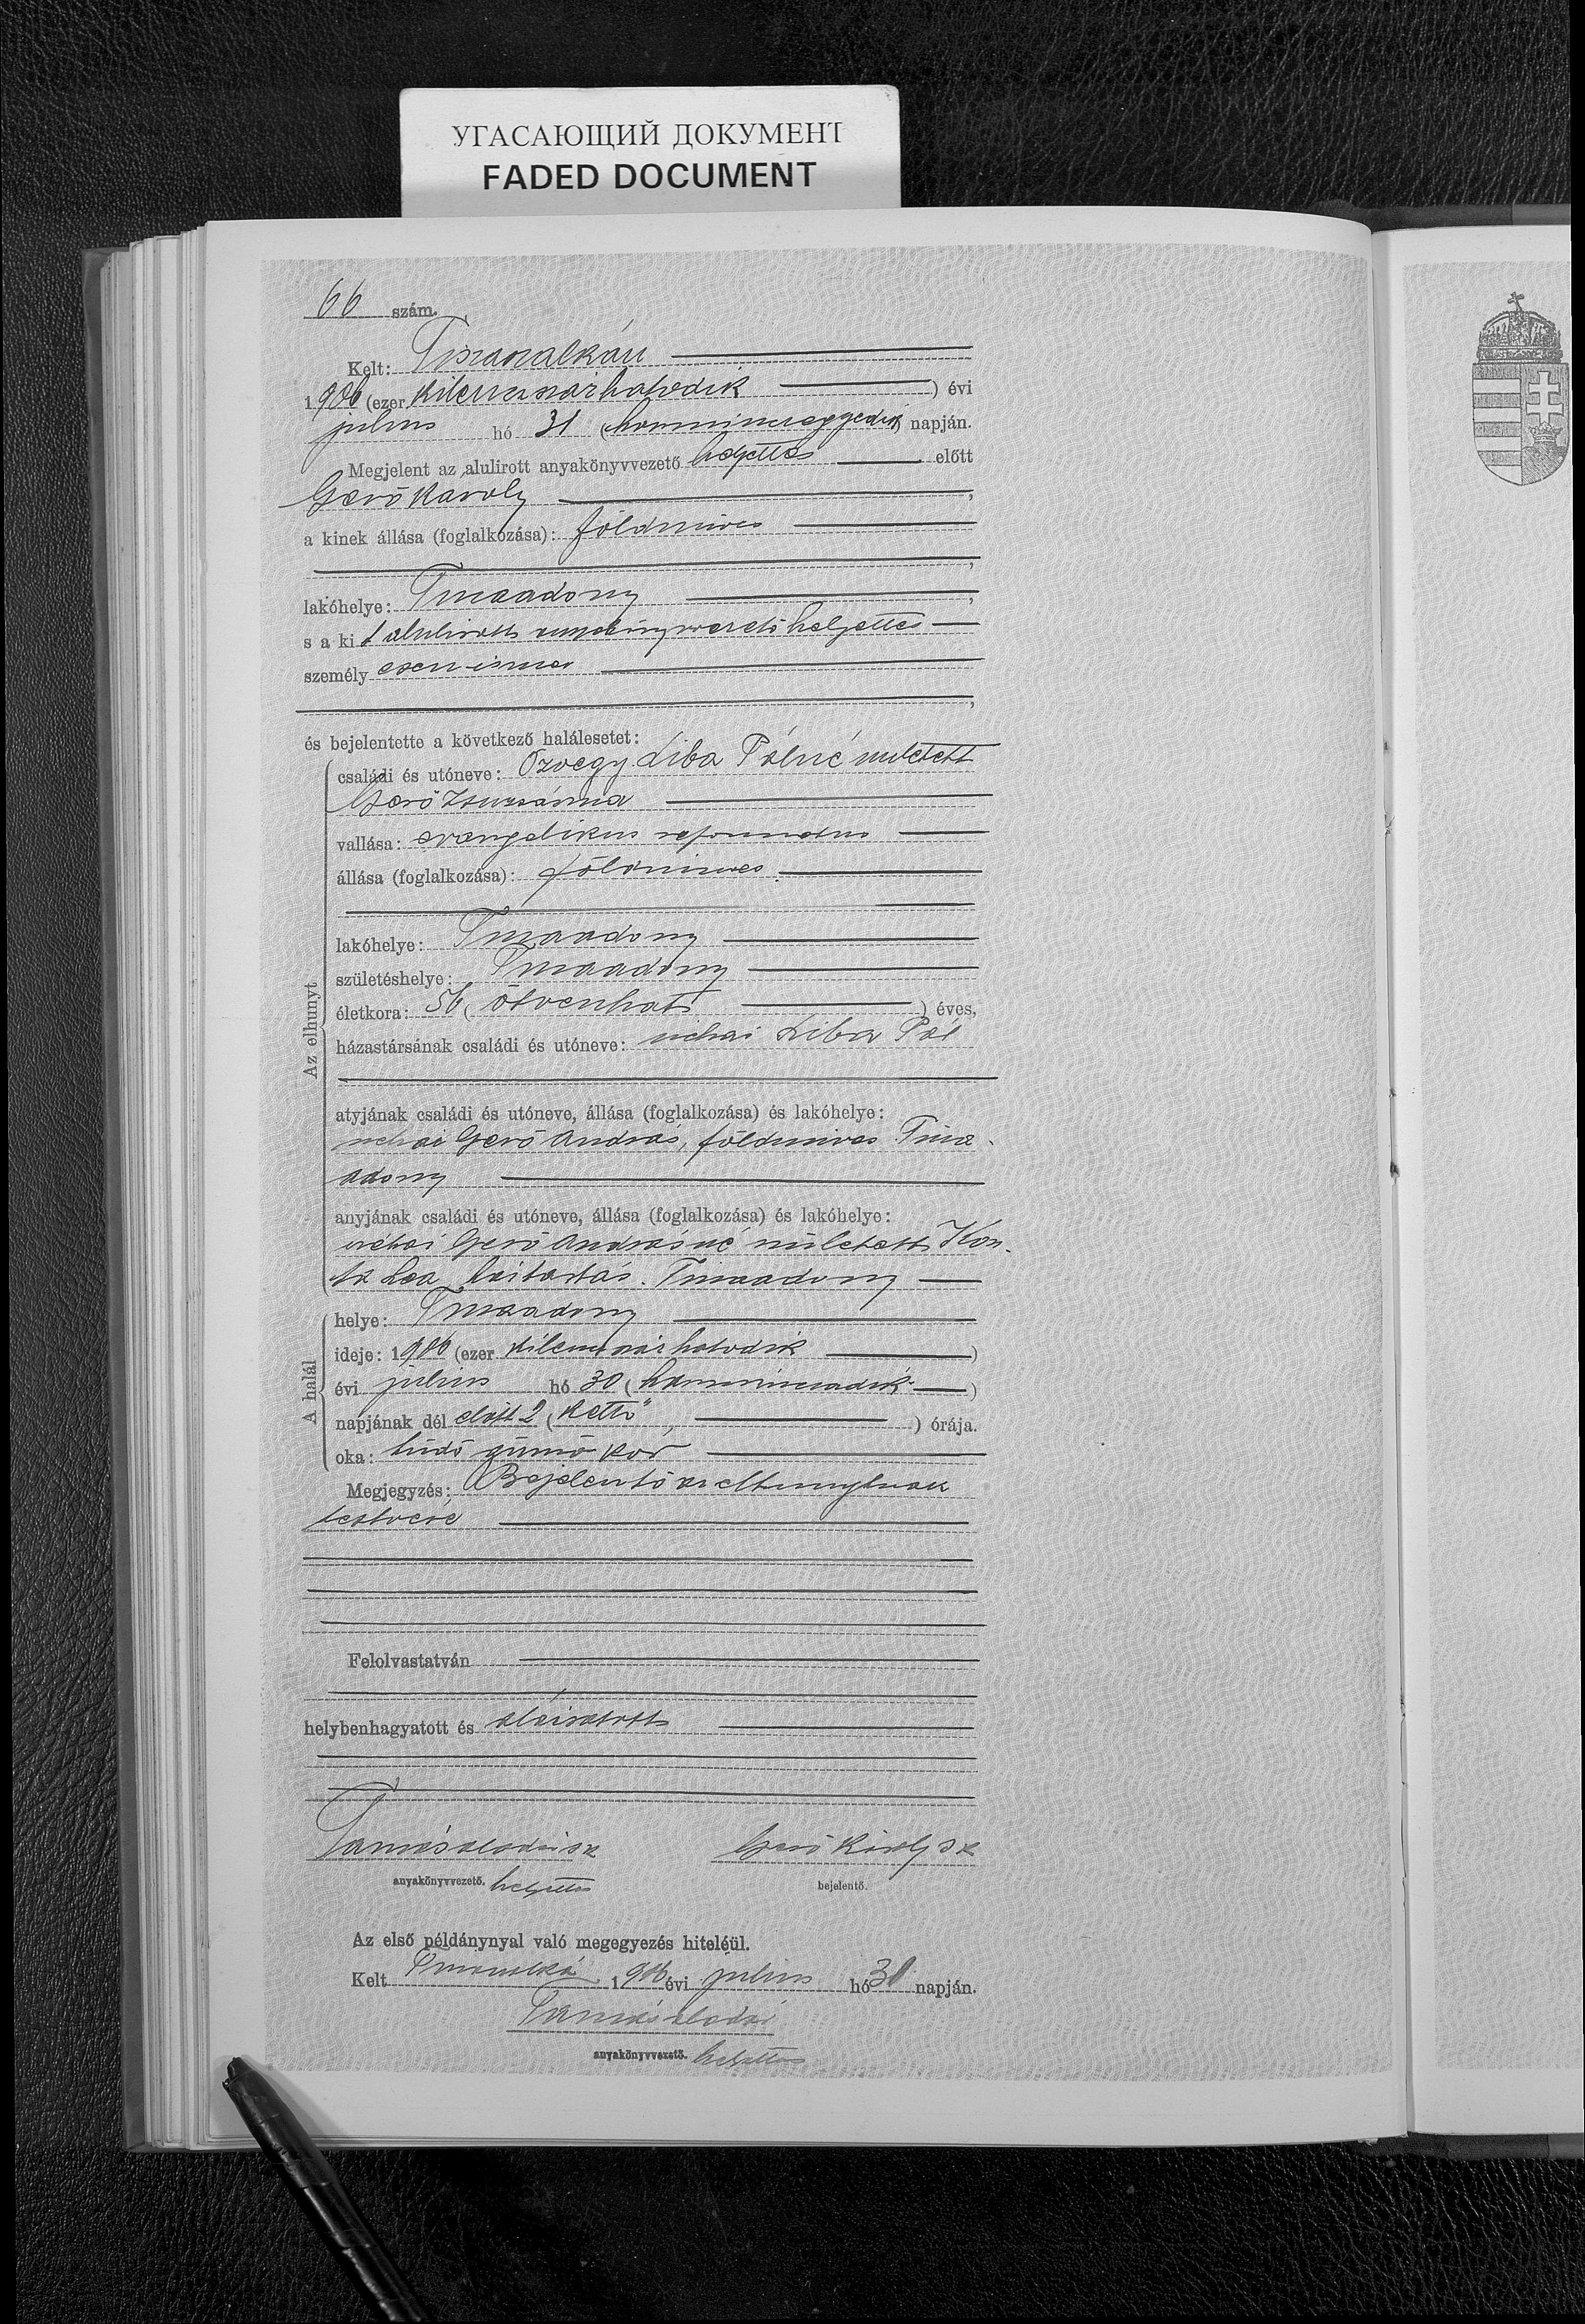 УГАСАЮЩИЙ ДОКУМЕНТ
FADED DOCUMENT
66 szám.
Kelt: Tiszaszalkán
1906 (ezer kilenczszázhatodik) évi
julius hó 31 (harminczegyedik) napján.
Megjelent az alulirott anyakönyvvezető helyettes előtt
Gerő Károly,
a kinek állása (foglalkozása): földmives
,
lakóhelye: Tiszaadony,
s a kit alulirott anyakönyvvezető helyettes
személyesen ismer
,
és bejelentette a következő halálesetet:
Az elhunyt
családi és utóneve: Özvegy Liba Pálné született
Gerő Zsuzsánna
vallása: evangelikus reformatus
állása (foglalkozása): földmives
lakóhelye: Tiszaadony
születéshelye: Tiszaadony
életkora: 56 (ötvenhat) éves,
házastársának családi és utóneve: néhai Liba Pál
atyjának családi és utóneve, állása (foglalkozása) és lakóhelye:
néhai Gerő András, földmives Tisza-
adony
anyjának családi és utóneve, állása (foglalkozása) és lakóhelye:
néhai Gerő Andrásné született Kon-
Lea háztartás. Tiszaadony
A halál
helye: Tiszaadony
ideje: 1906 (ezer kilenczszázhatodik)
évi julius hó 30 (harminczadik)
napjának dél előtt 2 (kettő) órája.
oka: tüdő gümő kór
Megjegyzés: Bejelentő az elhunytnak
testvére
Felolvastatván
helybenhagyatott és aláiratott
Tamás Aladár sk Gerő Károly sk
anyakönyvvezető. helyettes bejelentő.
Az első példánynyal való megegyezés hiteléül.
Kelt Tiszaszalka 1906 évi julius hó 31 napján.
Tamás Aladár
anyakönyvvezető. helyettes